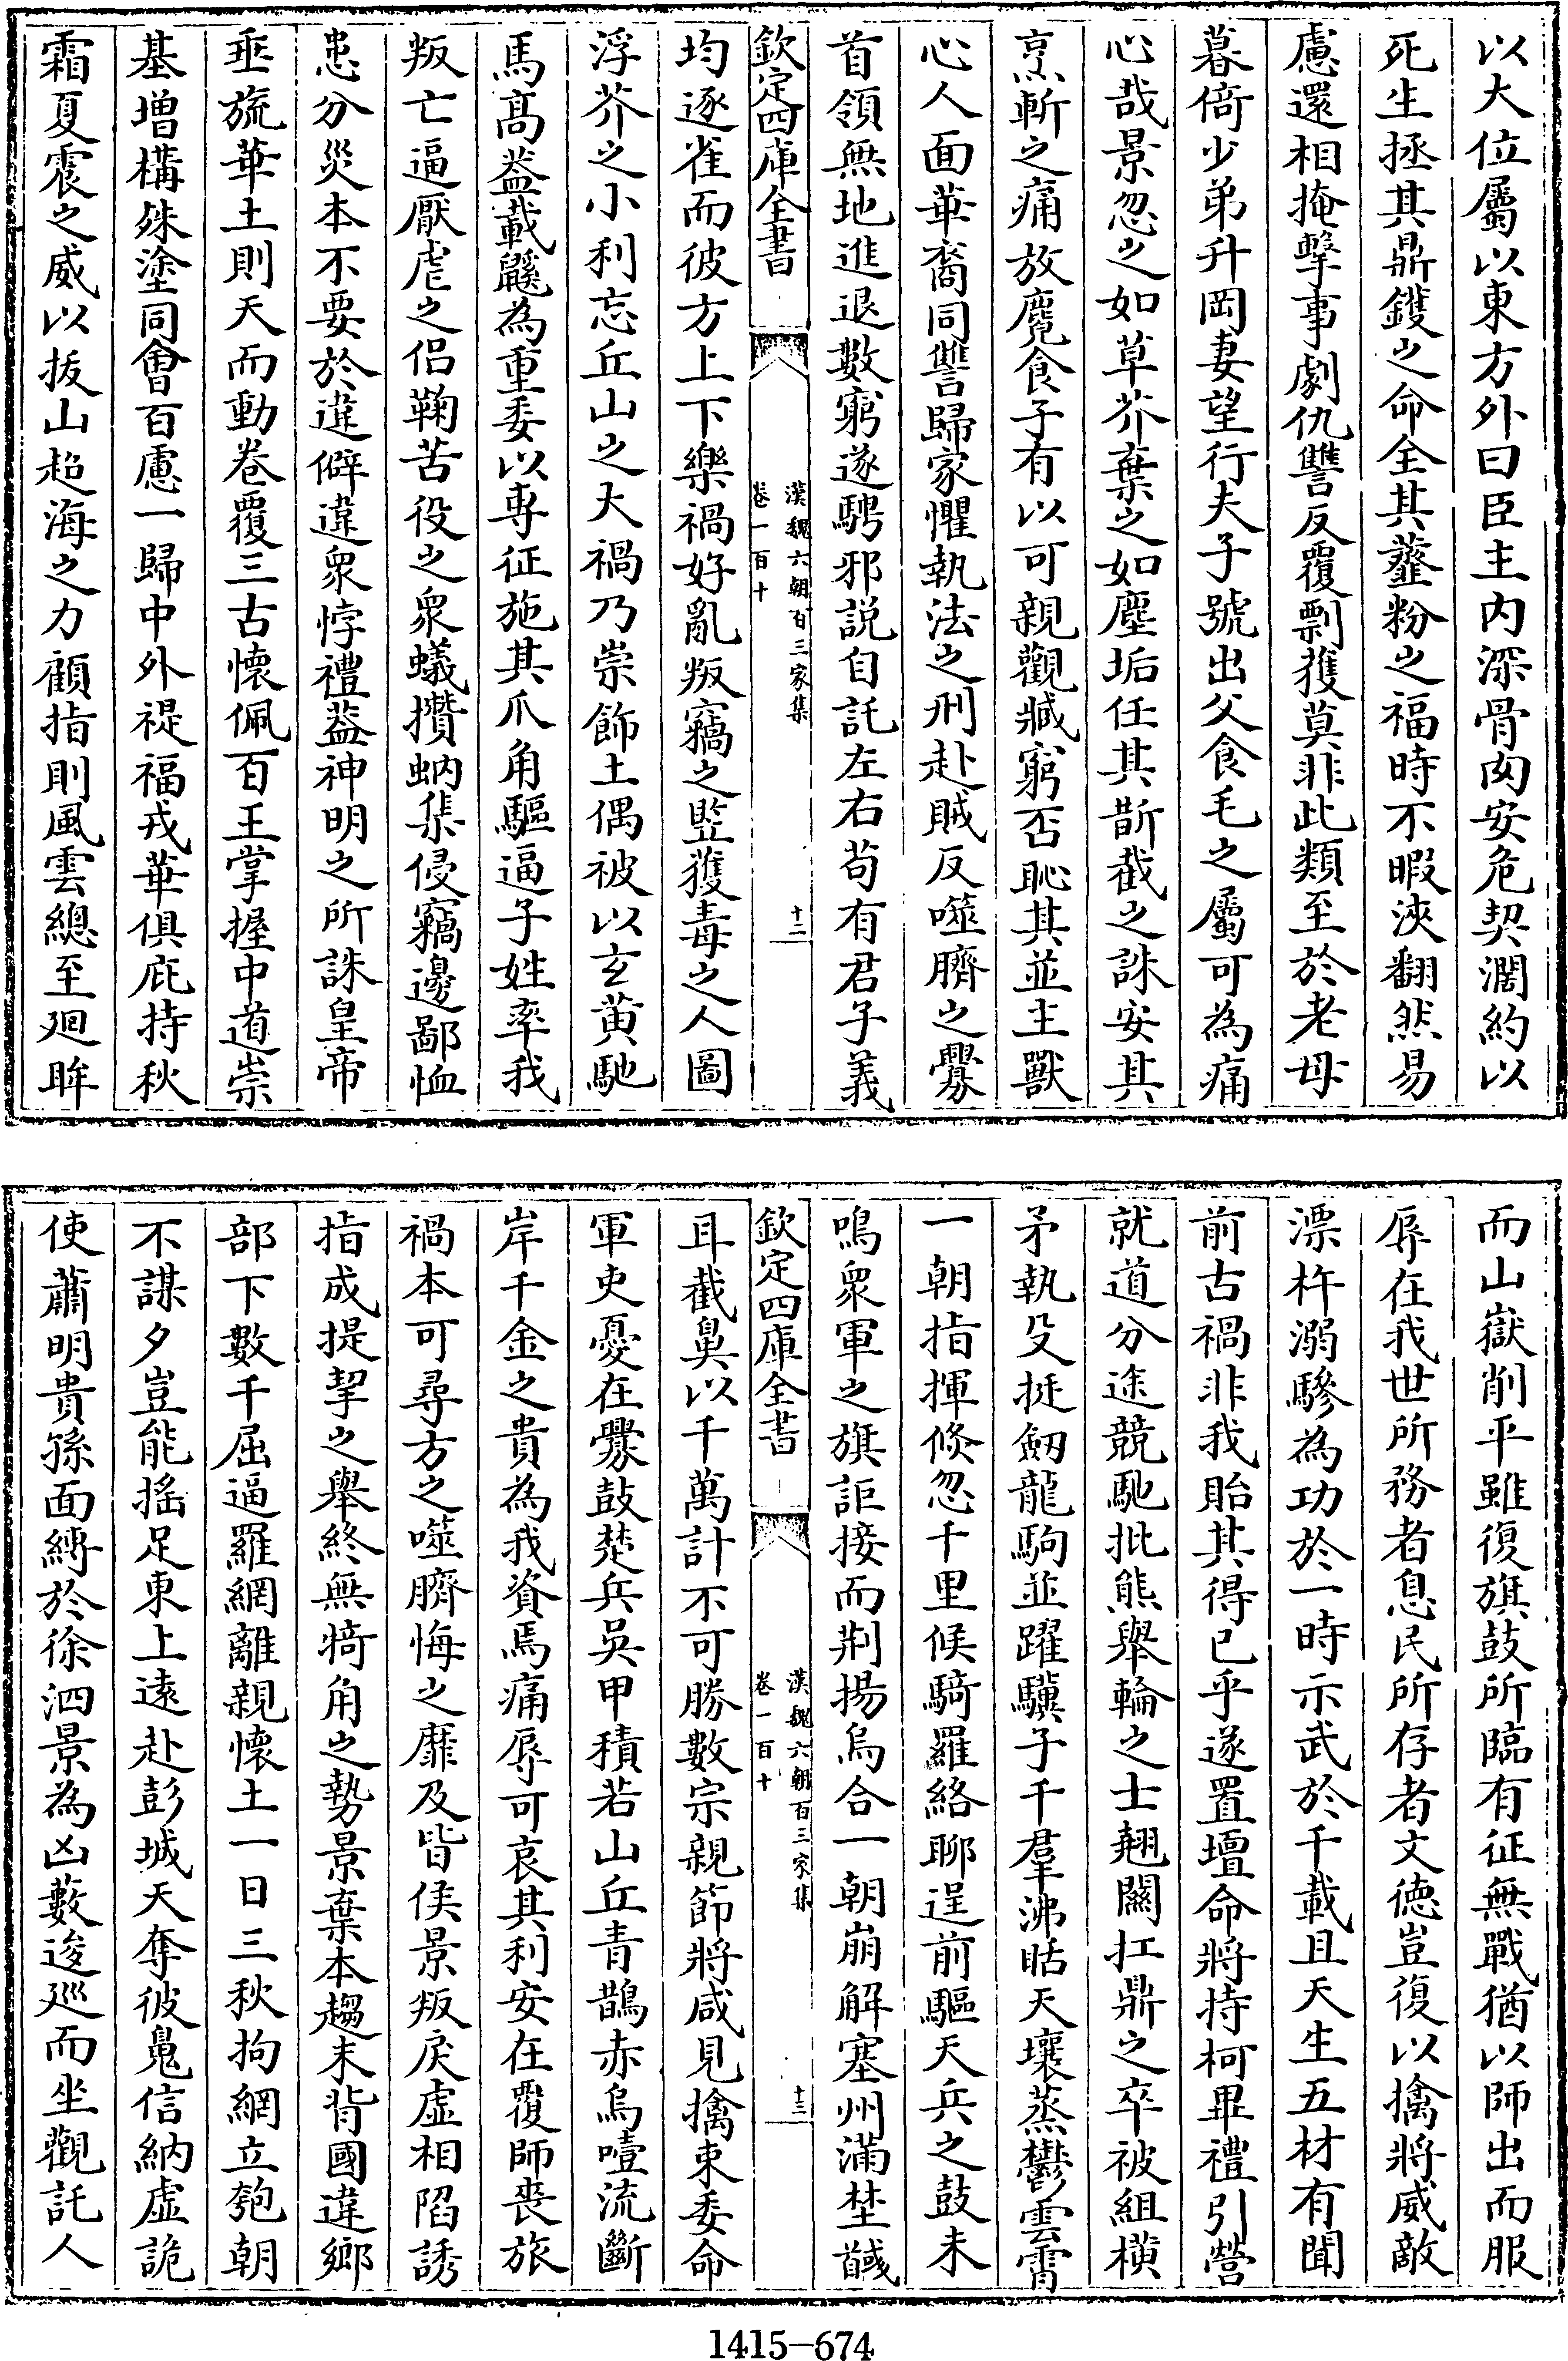 以大位屬以東方外曰臣主内深骨肉安危契濶約以
死生拯其鼎鑊之命全其虀粉之福時不暇浹翻然易
慮還相掩擊事劇仇讐反覆剽獲莫非此類至於老母
暮倚少弟升岡妻望行夫子號出父食毛之屬可為痛
心哉景忽之如草芥棄之如塵垢任其斮截之誅安其
烹斬之痛放麑食子有以可親觀臧窮否恥其並主獸
心人面華裔同讐歸家懼執法之刑赴賊反噬臍之釁
首領無地進退數窮遂騁邪説自託左右苟有君子義
欽定四庫全書
漢魏六朝百三家集
卷一百十
十二
均逐雀而彼方上下樂禍好亂叛竊之監獲毒之人圖
浮芥之小利忘丘山之大禍乃崇飾土偶被以玄黄馳
馬髙葢載鼷為重委以専征施其爪角驅逼子姓率我
叛亡逼厭虐之侣鞠苦役之衆蟻攢蚋集侵竊邊鄙恤
患分災本不要於違僻違衆悖禮葢神明之所誅皇帝
垂旒華土則天而動巻覆三古懐佩百王掌握中道崇
基增構殊塗同㑹百慮一歸中外禔福戎華俱庇持秋
霜夏震之威以拔山超海之力顧指則風雲總至廻眸
而山嶽削平雖復旗鼓所臨有征無戰猶以師出而服
辱在我世所務者息民所存者文徳豈復以擒將威敵
漂杵溺驂為功於一時示武於千載且天生五材有聞
前古禍非我貽其得已乎遂置壇命將持柯畢禮引營
就道分途競馳批熊舉輪之士翹關扛鼎之卒被組横
矛執殳挺劒龍駒並躍驥子千羣沸聒天壤蒸鬱雲霄
一朝指揮倐忽千里候騎羅絡聊逞前驅天兵之鼓未
鳴衆軍之旗詎接而荆揚烏合一朝崩解塞州滿埜馘
欽定四庫全書
漢魏六朝百三家集
卷一百十
十三
耳截鼻以千萬計不可勝數宗親節將咸見擒束委命
軍吏憂在釁鼓楚兵吳甲積若山丘青鵲赤烏噎流斷
岸千金之貴為我資焉痛辱可哀其利安在覆師喪旅
禍本可尋方之噬臍悔之靡及皆侯景叛戾虚相陷誘
指成提挈之舉終無犄角之勢景棄本趨末背國違鄉
部下數千屈逼羅網離親懐土一日三秋拘網立匏朝
不謀夕豈能揺足東上遠赴彭城天奪彼鬼信納虚詭
使蕭明貴孫面縛於徐泗景為凶藪逡廵而坐觀託人
1415-674